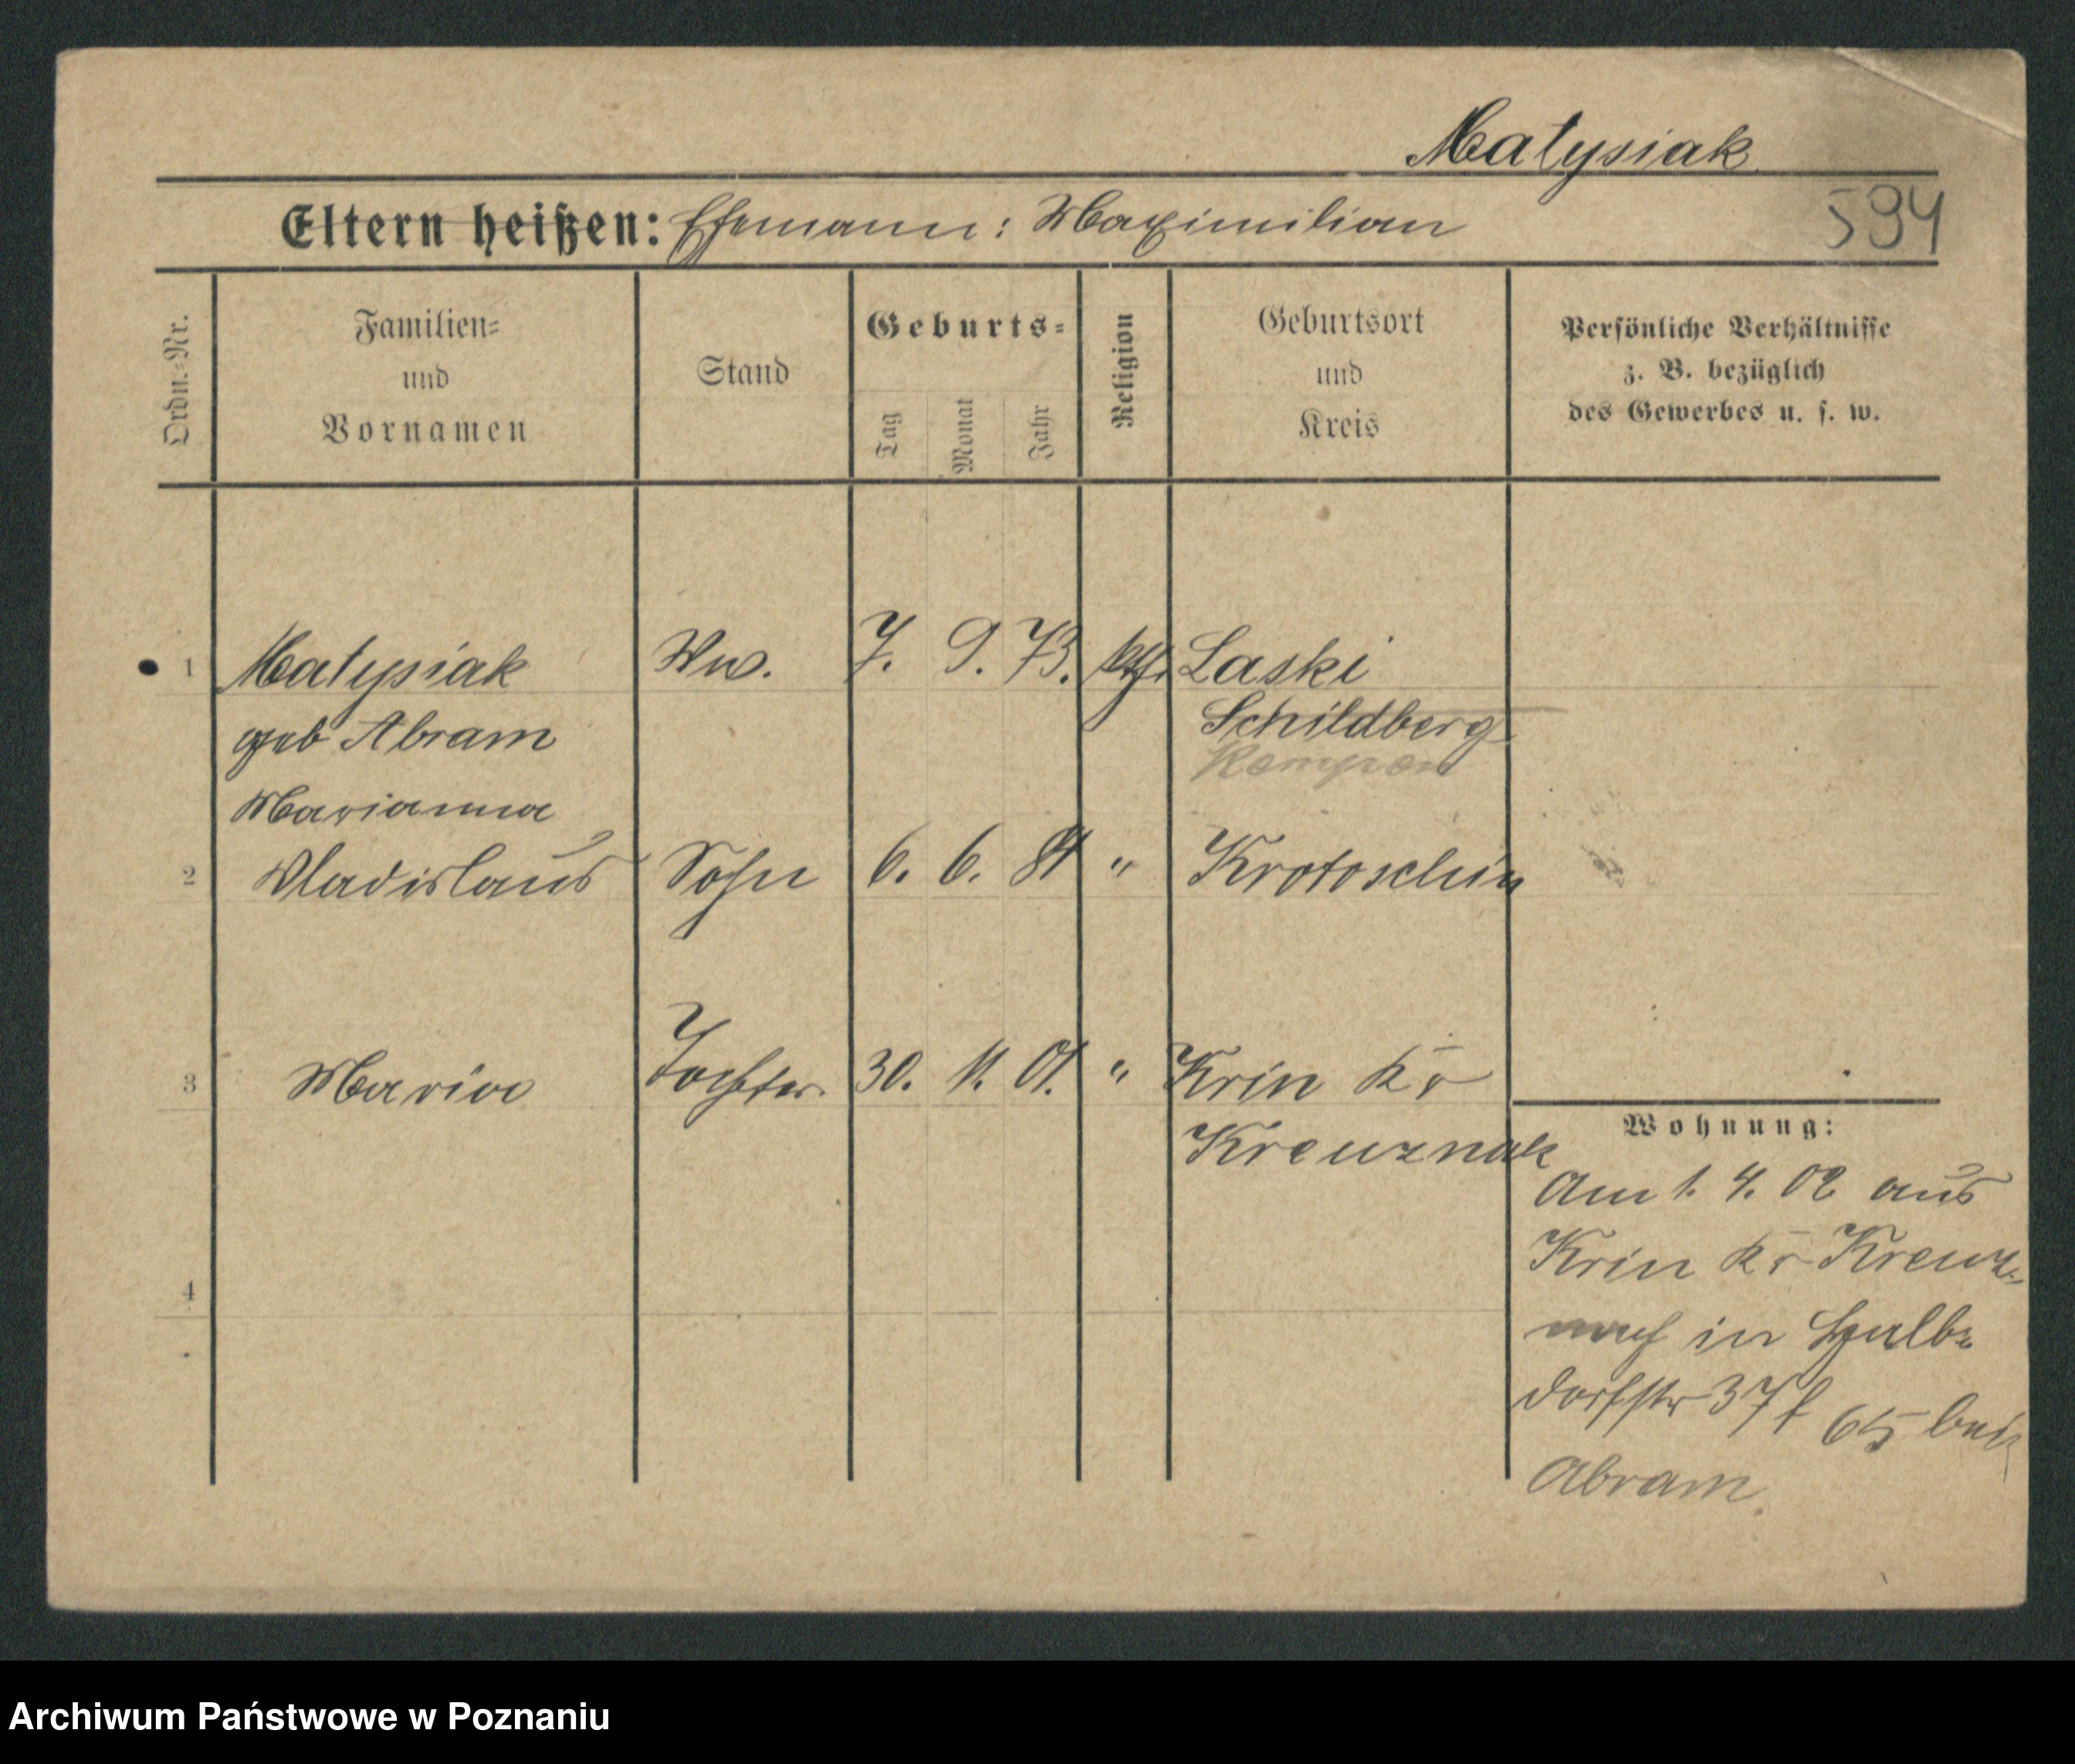 Matysiak
Eltern heißen: Ehemann: Maximilian
594
Ordn.-Nr.
Familien-
und
Vornamen
Stand
Geburts-
Tag
Monat
Jahr
Religion
Geburtsort
und
Kreis
Persönliche Verhältnisse
z. B. bezüglich
des Gewerbes u. s. w.
1 Matysiak Ww. 7. 9. 73. kth. Laski
geb Abram Schildberg
Kempen
Marianna
2 Wladislaus Sohn 6. 6. " Krotoschin
3 Maria Tochter 30. 11. 01. " Krin Kr
Kreuznak
4
Wohnung:
Am 1. 4. 02 aus
Krin Kr Kreuz-
nach in Halb-
dorfstr 37 65 bei
Abram.
Archiwum Państwowe w Poznaniu